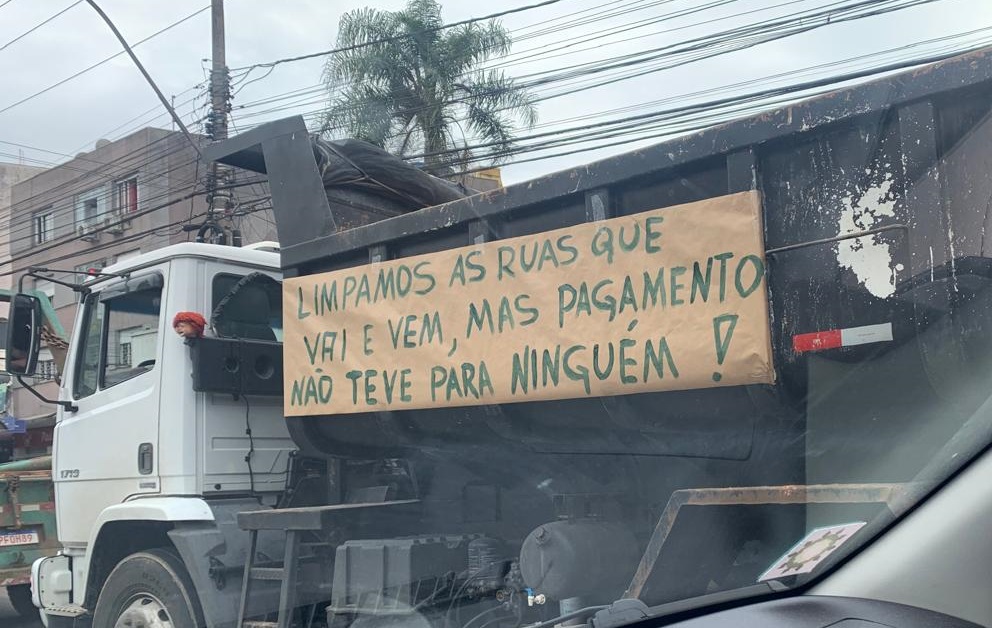 LIMPAMOS AS RUAS QUE
VAI E VEM, MAS PAGAMENTO
NÃO TEVE PARA NINGUÉM !
1719